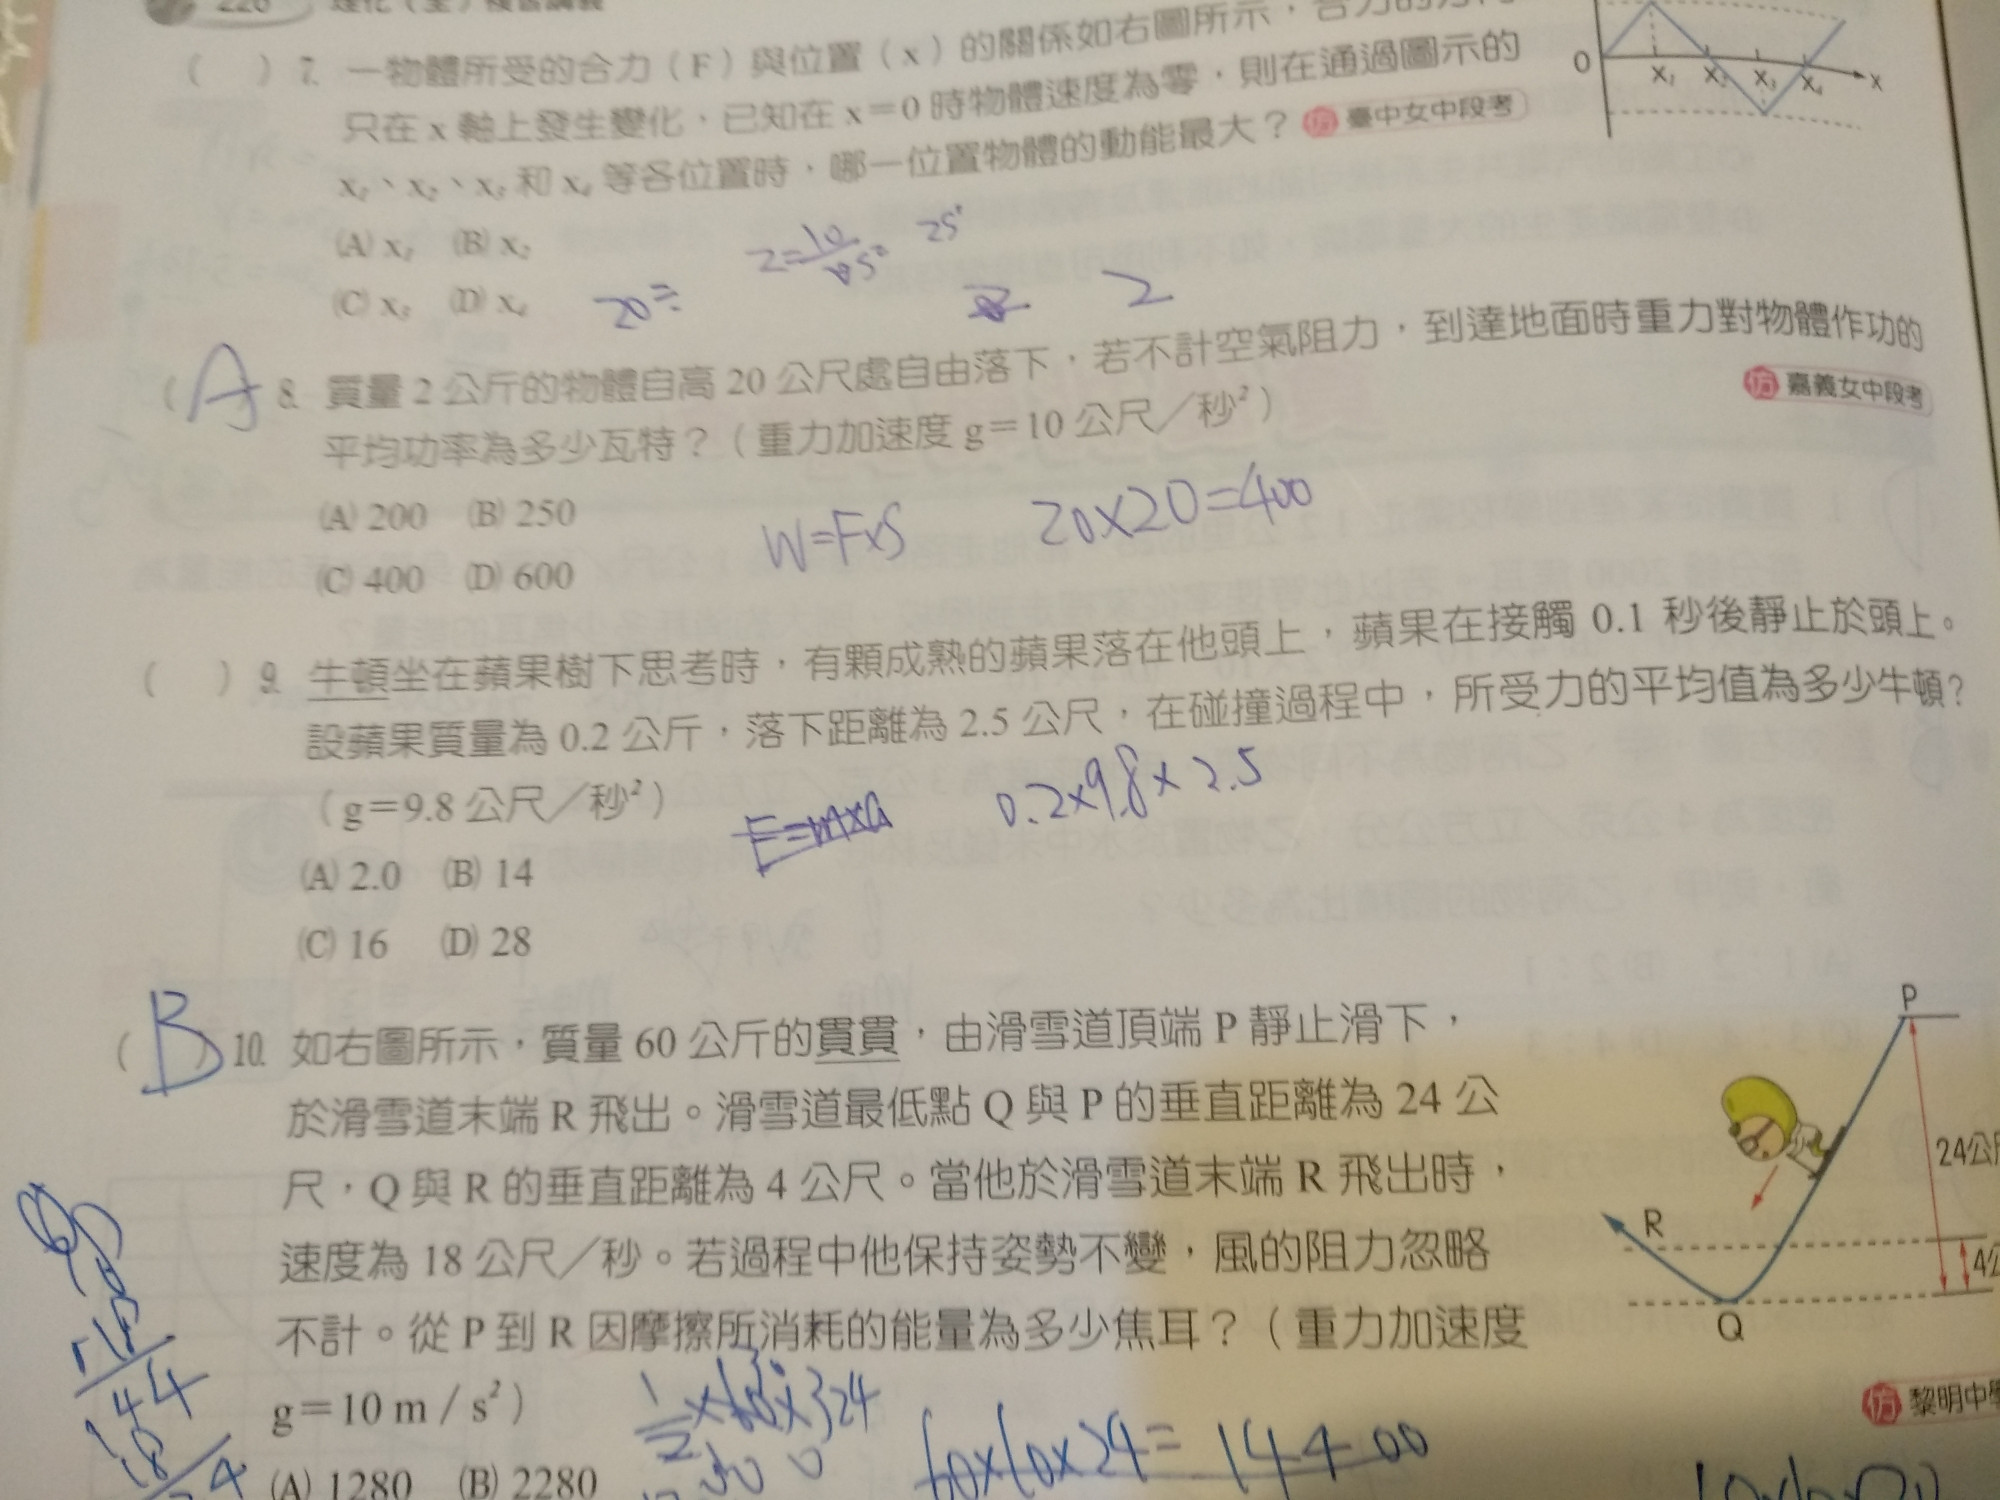 226 理化(全)複習講義
( ) 7. 一物體所受的合力(F)與位置(x)的關係如右圖所示,合力的方向
只在 x 軸上發生變化,已知在 x=0 時物體速度為零,則在通過圖示的
x₁、x₂、x₃ 和 x₄ 等各位置時,哪一位置物體的動能最大? 仿 臺中女中段考
(A) x₁ (B) x₂
(C) x₃ (D) x₄
O x₁ x₂ x₃ x₄ x
25²
20= 2
(A) 8. 質量 2 公斤的物體自高 20 公尺處自由落下,若不計空氣阻力,到達地面時重力對物體作功的
平均功率為多少瓦特?(重力加速度 g=10 公尺/秒²) 仿 嘉義女中段考
(A) 200 (B) 250
(C) 400 (D) 600
W=F×S 20×20=400
( ) 9. 牛頓坐在蘋果樹下思考時,有顆成熟的蘋果落在他頭上,蘋果在接觸 0.1 秒後靜止於頭上。
設蘋果質量為 0.2 公斤,落下距離為 2.5 公尺,在碰撞過程中,所受力的平均值為多少牛頓?
(g=9.8 公尺/秒²)
F=m×a 0.2×9.8×2.5
(A) 2.0 (B) 14
(C) 16 (D) 28
(B) 10. 如右圖所示,質量 60 公斤的貫貫,由滑雪道頂端 P 靜止滑下,
於滑雪道末端 R 飛出。滑雪道最低點 Q 與 P 的垂直距離為 24 公
尺,Q 與 R 的垂直距離為 4 公尺。當他於滑雪道末端 R 飛出時,
速度為 18 公尺/秒。若過程中他保持姿勢不變,風的阻力忽略
不計。從 P 到 R 因摩擦所消耗的能量為多少焦耳?(重力加速度
g=10 m/s²) 仿 黎明中學
(A) 1280 (B) 2280
P
24公尺
R
4公
Q
144
18
60×10×24=14400